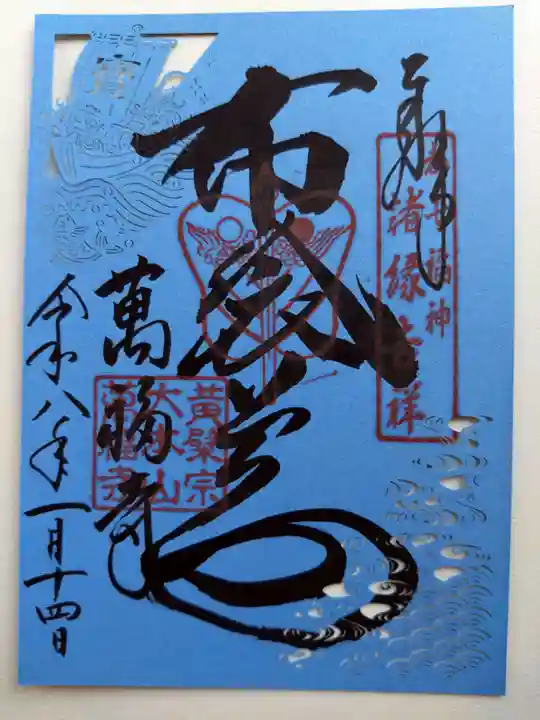 奉拝
老寿福神
諸縁吉祥
布袋尊
寳
萬福寺
黄檗宗
大水山
萬福寺
令和八年一月十四日